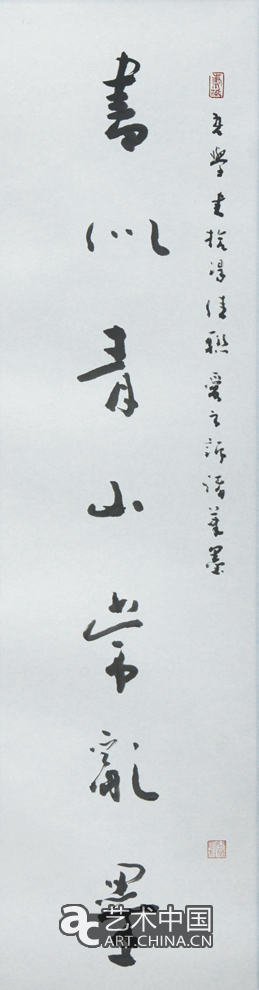 吾學書拾得佳聯愛之訴諸筆墨
書似青山常亂疊
艺术中国
ART.CHINA.CN